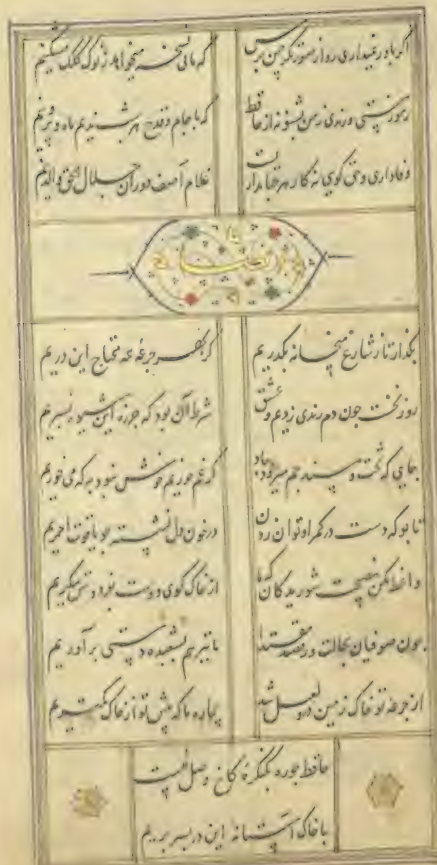 اگر باور نمیداری رو از صورتگر چین پرس که مانی نسخه میخواهد ز نوک کلک مشکینم
رموز مستی و رندی ز من بشنو نه از حافظ که با جام و قدح هر شب ندیم ماه و پروینم
وفاداری و حق گویی نه کار هر غلام آصف دوران جلال الحق والدینم
بگذار تا ز شارع میخانه بگذریم کز بهر جرعه همه محتاج این دریم
روز نخست چون دم رندی زدیم و عشق شرط آن بود که جز ره این شیوه نسپریم
جایی که تخت و مسند جم میرود بباد گر غم خوریم خوش نبود به که می خوریم
تا بو که دست در کمر او توان زدن در خون دل نشسته چو یاقوت احمریم
واعظ مکن نصیحت شوریدگان که ما از خاک کوی دوست بفردوس ننگریم
چون صوفیان بحالت و رقصند مقتدا ما نیز هم بشعبده دستی برآوریم
از جرعه تو خاک زمین در و لعل شد بیچاره ما که پیش تو از خاک کمتریم
حافظ چو ره بکنگره کاخ وصل نیست
با خاک آستانه این در بسر بریم